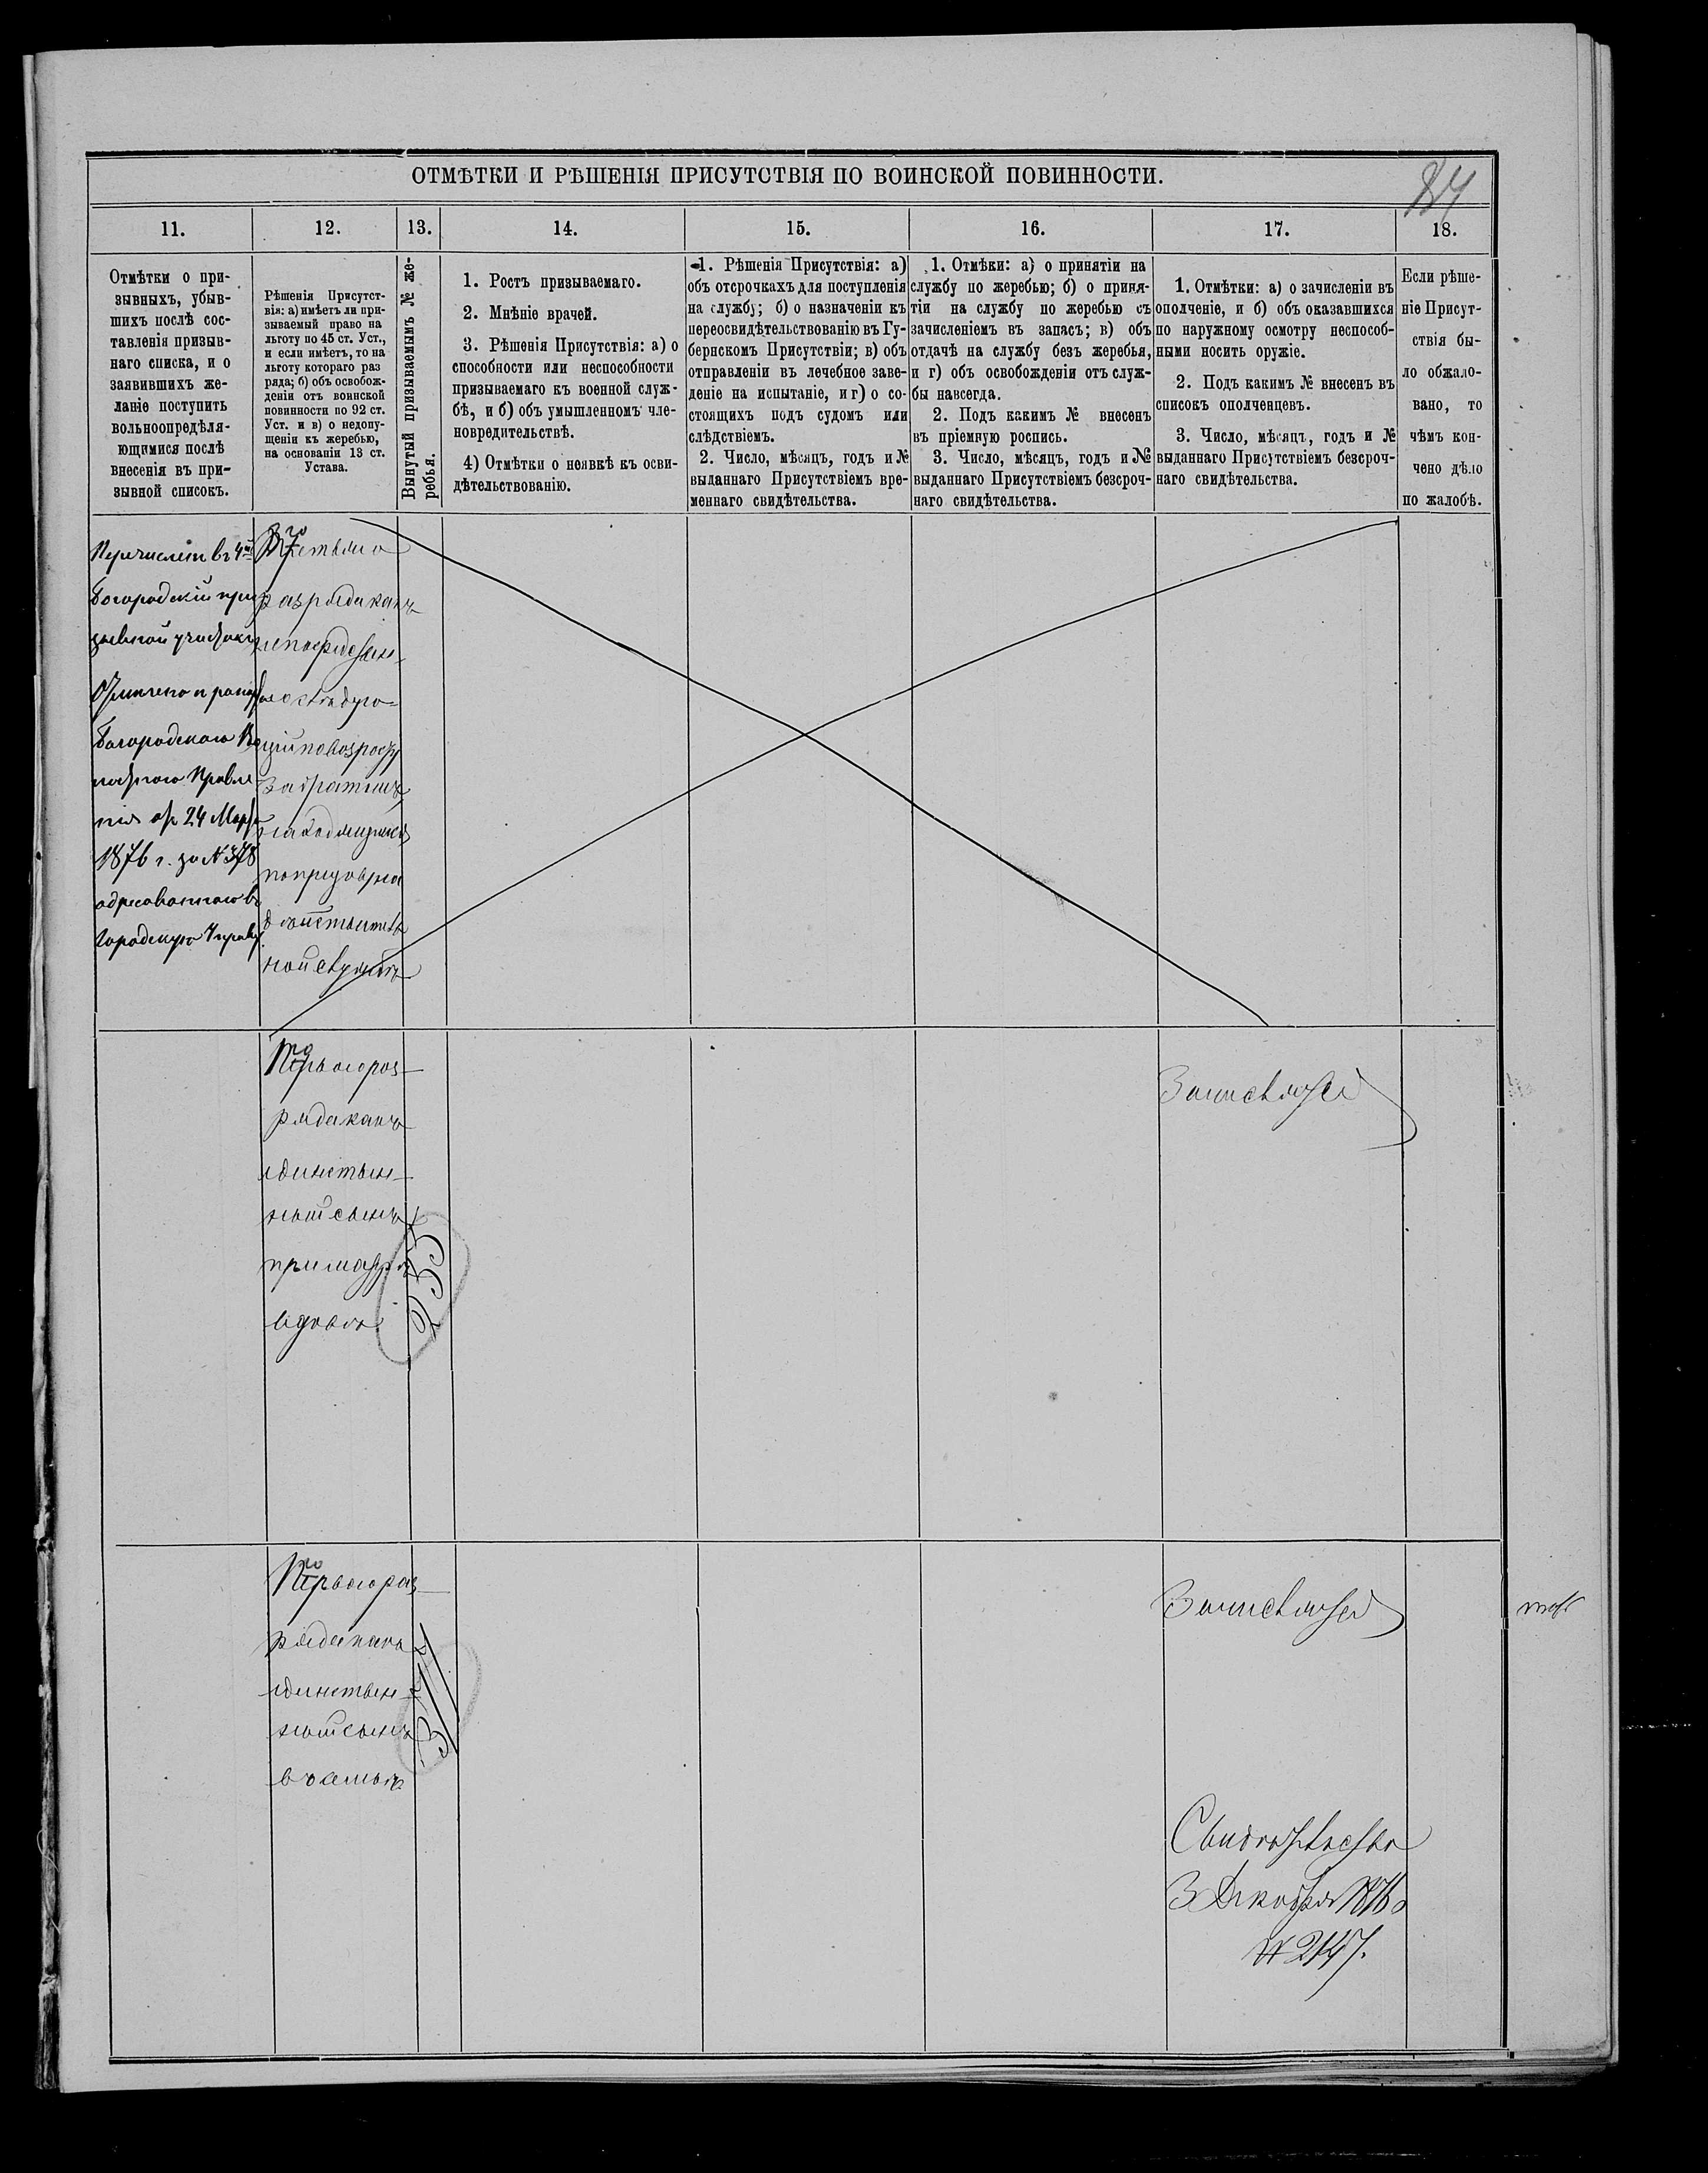 84
ОТМѢТКИ И РѢШЕНІЯ ПРИСУТСТВІЯ ПО ВОИНСКОЙ ПОВИННОСТИ.
11.
Отмѣтки о при-
зывныхъ, убыв-
шихъ послѣ сос-
тавленія призыв-
наго списка, и о
заявившихъ же-
ланіе поступить
вольноопредѣля-
ющимися послѣ
внесенія въ при-
зывной списокъ.
12.
Рѣшенія Присутст-
вія: а) имѣетъ ли при-
зываемый право на
льготу по 45 ст. Уст.,
и если имѣетъ, то на
льготу котораго раз
ряда; б) объ освобож-
деніи отъ воинской
повинности по 92 ст.
Уст. и в) о недопу-
щеніи къ жеребью,
на основаніи 13 ст.
Устава.
13.
Вынутый призываемымъ № же-
ребья.
14.
1. Ростъ призываемаго.
2. Мнѣніе врачей.
3. Рѣшенія Присутствія: а) о
способности или неспособности
призываемаго къ военной служ-
бѣ, и б) объ умышленномъ чле-
новредительствѣ.
4) Отмѣтки о неявкѣ къ осви-
дѣтельствованію.
15.
1. Рѣшенія Присутствія: а)
объ отсрочкахъ для поступленія
на службу; б) о назначеніи къ
переосвидѣтельствованію въ Гу-
бернскомъ Присутствіи; в) объ
отправленіи въ лечебное заве-
деніе на испытаніе, и г) о со-
стоящихъ подъ судомъ или
слѣдствіемъ.
2. Число, мѣсяцъ, годъ и №
выданнаго Присутствіемъ вре-
меннаго свидѣтельства.
16.
1. Отмѣки: а) о принятіи на
службу по жеребью; б) о приня-
тіи на службу по жеребью съ
зачисленіемъ въ запасъ; в) объ
отдачѣ на службу безъ жеребья,
и г) объ освобожденіи отъ служ-
бы навсегда.
2. Подъ какимъ № внесенъ
въ пріемную роспись.
3. Число, мѣсяцъ, годъ и №
выданнаго Присутствіемъ безсроч-
наго свидѣтельства.
17.
1. Отмѣтки: а) о зачисленіи въ
ополченіе, и б) объ оказавшихся
по наружному осмотру неспособ-
ными носить оружіе.
2. Подъ какимъ № внесенъ въ
списокъ ополченцевъ.
3. Число, мѣсяцъ, годъ и №
выданнаго Присутствіемъ безсроч-
наго свидѣтельства.
18.
Если рѣше-
ніе Присут-
ствія бы-
ло обжало-
вано, то
чѣмъ кон-
чено дѣло
по жалобѣ.
Перечисленъ въ 4й
Богородскій при
зывной участокъ
Богородскаго Во
лостного Правле
нія отъ 24 Марта
1876 г. за № 378
адресованного въ
Городскую Управу
Третьяго
разряда какъ
непосредствен-
но слѣдую-
щій по возрасту
за братомъ
находящимся
по призыву на
дѣйствитель
ной службѣ
Перваго раз-
ряда какъ
единствен-
ный сынъ
при матери
вдовѣ
255
Зачисляется
Перваго раз-
ряда какъ
единствен-
ный сынъ
въ семьѣ
Зачисляется
Свидѣтельство
3 Декабря 1876
№ 2147.